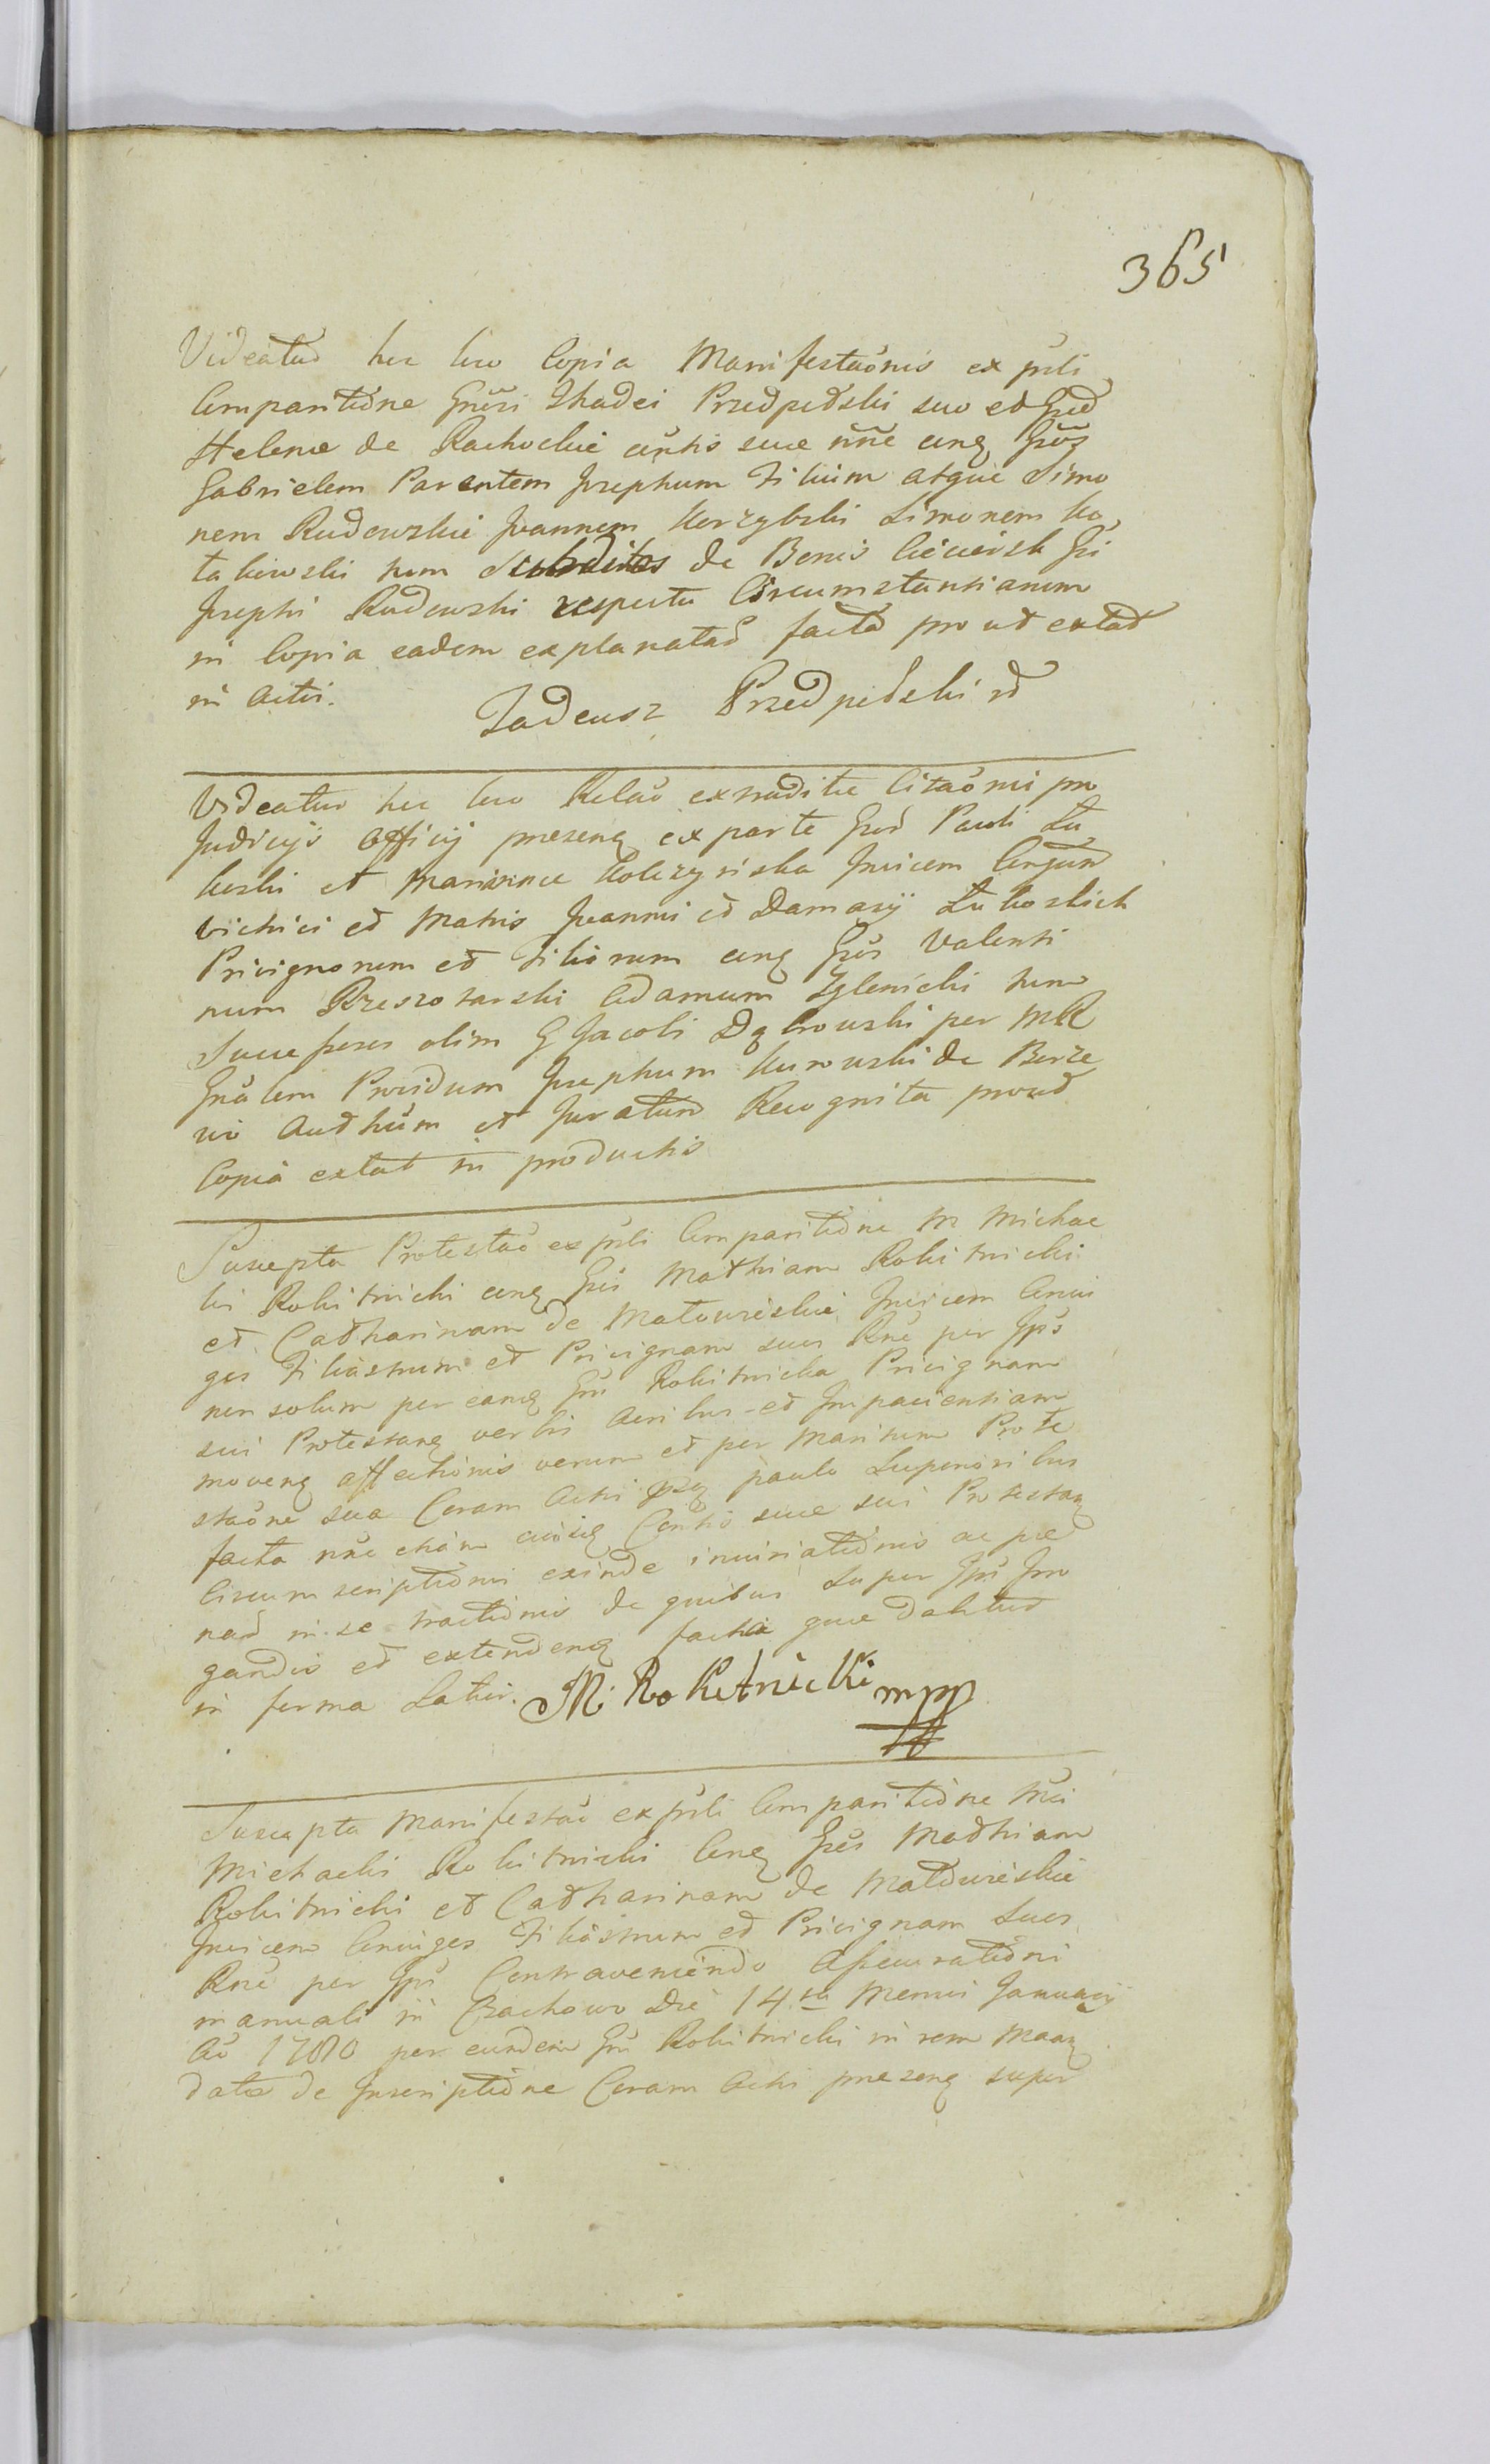 365
Videatur hic loco Copia Manifestaõnis ex prsli
Comparitiõne Gnõsi Thadei Przedpełski suo et Gnod
Helenæ de Rachockie cõrtis suæ nñe cong Gnõs
Gabrielem Parentem Josephum Filium atque Simo
nem Rudowskie Joannem Korzybski Simonem Ko,
takowski tum Subditos de Bonis Gi
Josephi Rudowski respectu Circumstantiarum
in Copia eadem explanatar facta prout extat
in Actis.
Tadeusz Przedpełski
Videatur hic loco Relaõ extraditæ Citaõnis pro
Judicijs Officij præseng ex parte Gnor Pauli Łu,
koski et Mariannæ Kołczyńska Invicem Conjun
Victrici et Matris Joannis et Damasÿ Łukoskich
Privignorum et Filiorum cong Gnõs Valenti
num Rzeszotarski Adamum Zglenicki tum
Successores olim G Jacobi Dąbrowski per MR
Gnãlem Providum Josephum Kurowski de
Authũm et Juratum Recognita prout
Copia extat in productis
Suscepta Protestaõ ex prsli Comparitiõne M Michae
lis Rokitnicki cong Gnõs Mathiam Rokitnicki
et Catharinam de Invicem Conju
ges Filiastrum et Privignam suos Rñe per Ipõs
non solum per eang Gñ Rokitnicka Privignam
sui Protestang verbis Acribus et Impacientiam
moveng affectionis verum et per Maritum Prote
staõne sua Coram Actis prg paulo Superioribus
facta nñe etiãm Contis suæ sui Protestang
Circumscriptiõnis exinde injuriatiõnis ac pæ
nar in se tractiõnis de quibus Super Ipõs Irro
gandis et extendeng facta quæ dabitur
in forma Latiori. M. Rokitnicki mpp
Suscepta Manifestaõ ex prsli Comparitiõne Mci
Michaelis Rokitnicki Cong Gnõs Mathiam
Rokitnicki et Catharinam de
Invicem Conjuges Filiastrum et Privignam Suos
Rñe per Ipõs Contraveniendo Assecuratiõni
manuali in Czachowo Die 14ta Mensis Januarij
Aõ 1780 per eundem Gñ Rokitnicki in rem Maang
datæ de Inscriptiõne Coram Actis præseng super